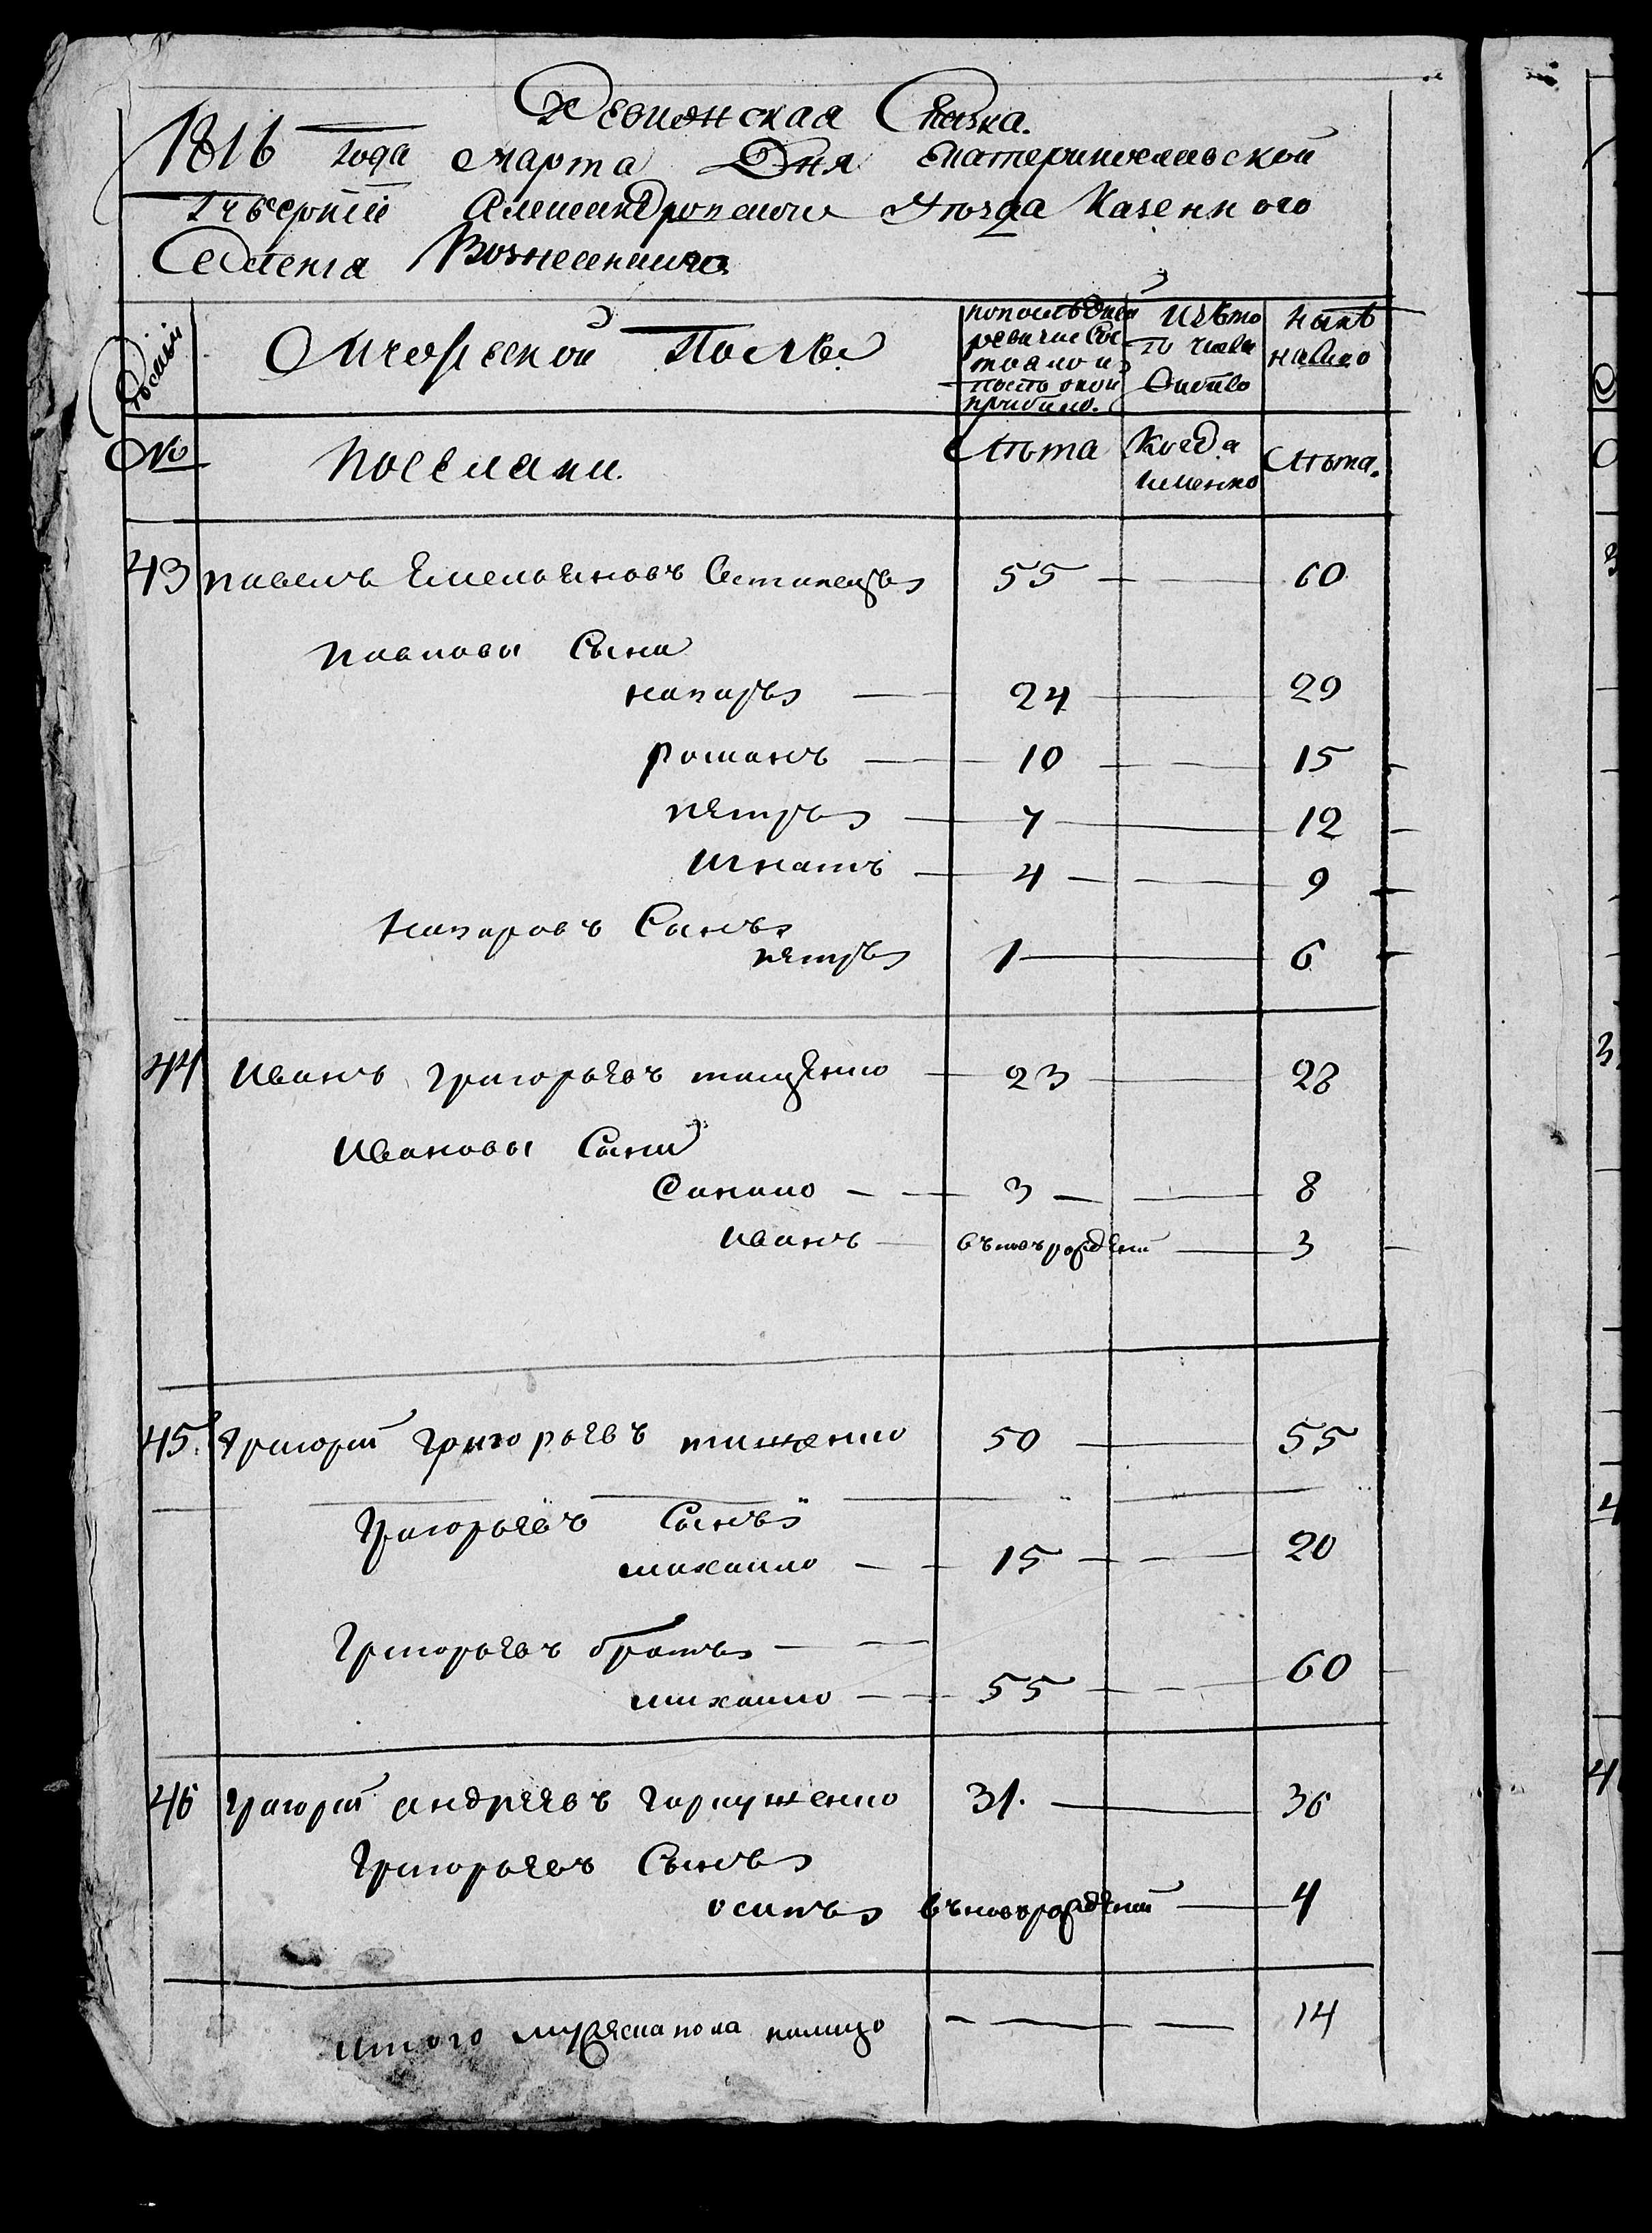 Ревижская Сказка.
1816 года Марта Дня Екатеринославской
Губернии Александровского Уезда Казенного
Селенія Вознесенского
Семьи Мужеской Полъ По последней ревизие состояло и после оной прибыло. Изъ того числа выбыло Ныне налицо
№ Поселяни. Лѣта Когда именно Лѣта.
43 Павелъ Емельяновъ 55 60
Павловы Сыни
назаръ 24 29
романъ 10 15
петръ 7 12
Игнатъ 4 9
назаровъ Сынъ
петръ 1 6
44 Иванъ григорьевъ тищенко 23 28
Ивановы Сыни
Данило 3 8
Иванъ въновърожденъ 3
45. Григорий григорьевъ тищенко 50 55
григорьевъ Сынъ
михаило 15 20
григорьевъ братъ
михаило 55 60
46 григорий андреевъ 31. 36
григорьевъ Сынъ
осипъ вновърожденъ 4
итого мужеска пола налицо 14